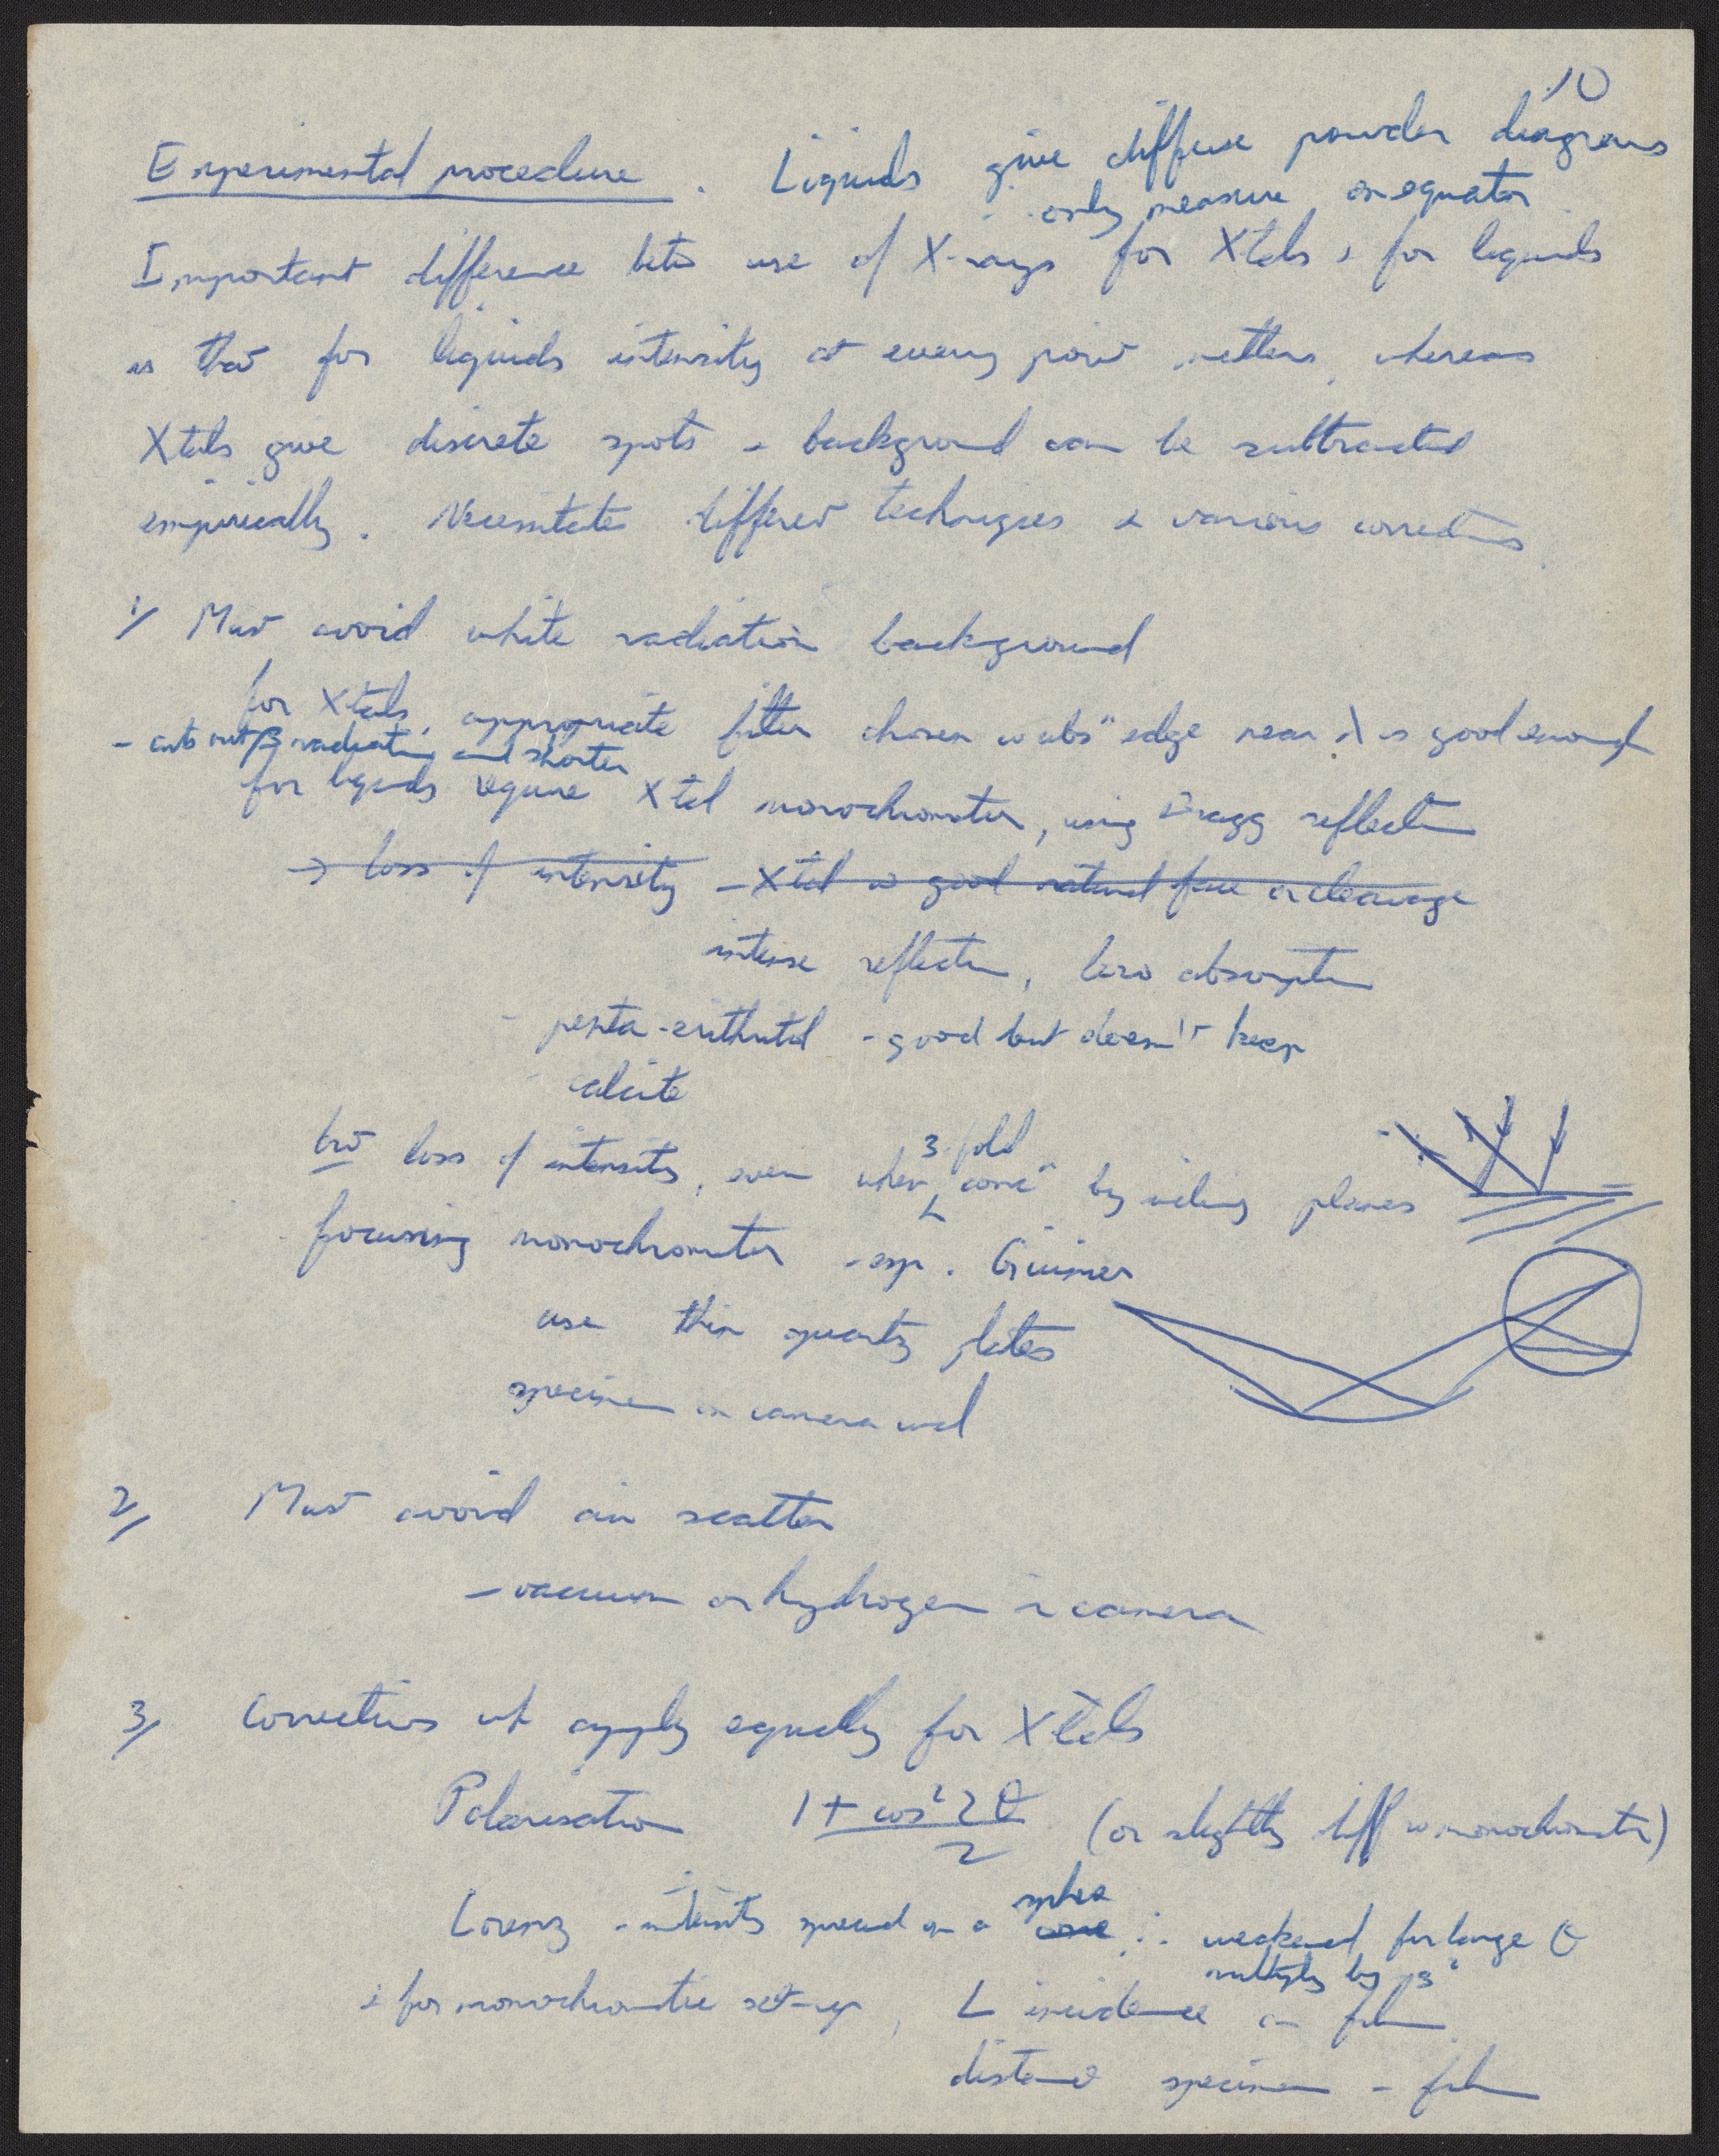 10
Experimental procedure. Liquids give diffuse powder diagrams
only measure on equator
Important difference betn use of X-rays for Xtals & for liquids
is that for liquids intensity at every point matters, whereas
Xtals give discrete spots & background can be subtracted
empirically. Necessitates different techniques & various corrections
1/ Must avoid white radiation background
for Xtals, appropriate filter chosen w absn edge near λ is good enough
- cuts out β radiation and shorter
for liquids require Xtal monochromator, using Bragg reflection
→ loss of intensity - Xtal w good natural face or cleavage
intense reflection, low absorption
- penta-erithritol - good but doesn't keep
- calcite
but loss of intensity, even when 3-fold concn by inclining planes
focusing monochromator - esp. Guinier
use thin quartz plates
specimen on camera wall
2/ Must avoid air scatter
- vacuum or hydrogen in camera
3/ Corrections wh apply equally for Xtals
Polarisation 1 + cos² 2θ / 2 (or slightly diff w monochromator)
Lorenz - intensity spread on a cone sphere ∴ weakened for large θ
multiply by
& for monochromatic set-up, L incidence on film
distance specimen - film